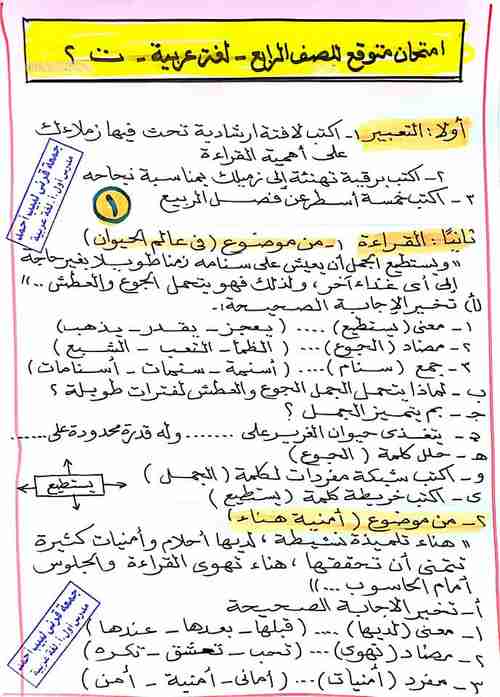 امتحان متوقع للصف الرابع - لغة عربية - ت ٢
أولا: التعبير ١- اكتب لافتة ارشادية تحث فيها زملاءك
على أهمية القراءة
٢- اكتب برقية تهنئة إلى زميلك بمناسبة نجاحه
٣- اكتب خمسة أسطر عن فصل الربيع
١
جمعة قرنى لبيب أحمد
مدرس أول أ. لغة عربية
ثانيًا: القراءة ١- من موضوع (فى عالم الحيوان)
" ويستطيع الجمل أن يعيش على سنامه زمنا طويلا بغير حاجة
إلى أى غذاء آخر، ولذلك فهو يتحمل الجوع والعطش .."
أ) تخير الإجابة الصحيحة:
١- معنى (يستطيع) .... (يعجز - يقدر - يذهب)
٢- مضاد (الجوع) .... (الظمأ - التعب - الشبع)
٣- جمع (سنام) .... (أسنمة - سنيمات - أسنامات)
ب- لماذا يتحمل الجمل الجوع والعطش لفترات طويلة ؟
جـ- بم يتميز الجمل ؟
د- يتغذى حيوان الغرير على ....... وله قدرة محدودة على.....
هـ- حلل كلمة (الجوع)
و- اكتب شبكة مفردات لكلمة (الجمل)
ى- اكتب خريطة كلمة (يستطيع)
يستطيع
٢- من موضوع (أمنية هناء)
" هناء تلميذة نشيطة، لديها أحلام وأمنيات كثيرة
تتمنى أن تحققها، هناء تهوى القراءة والجلوس
أمام الحاسوب ..."
أ- تخير الاجابة الصحيحة
١- معنى (لديها) .... (قبلها - بعدها - عندها)
٢- مضاد (تهوى) .... (تحب - تعشق - تكره)
٣- مفرد (أمنيات) ... (أمانى - أمنية - أمن)
جمعة قرنى لبيب أحمد
مدرس أول أ. لغة عربية